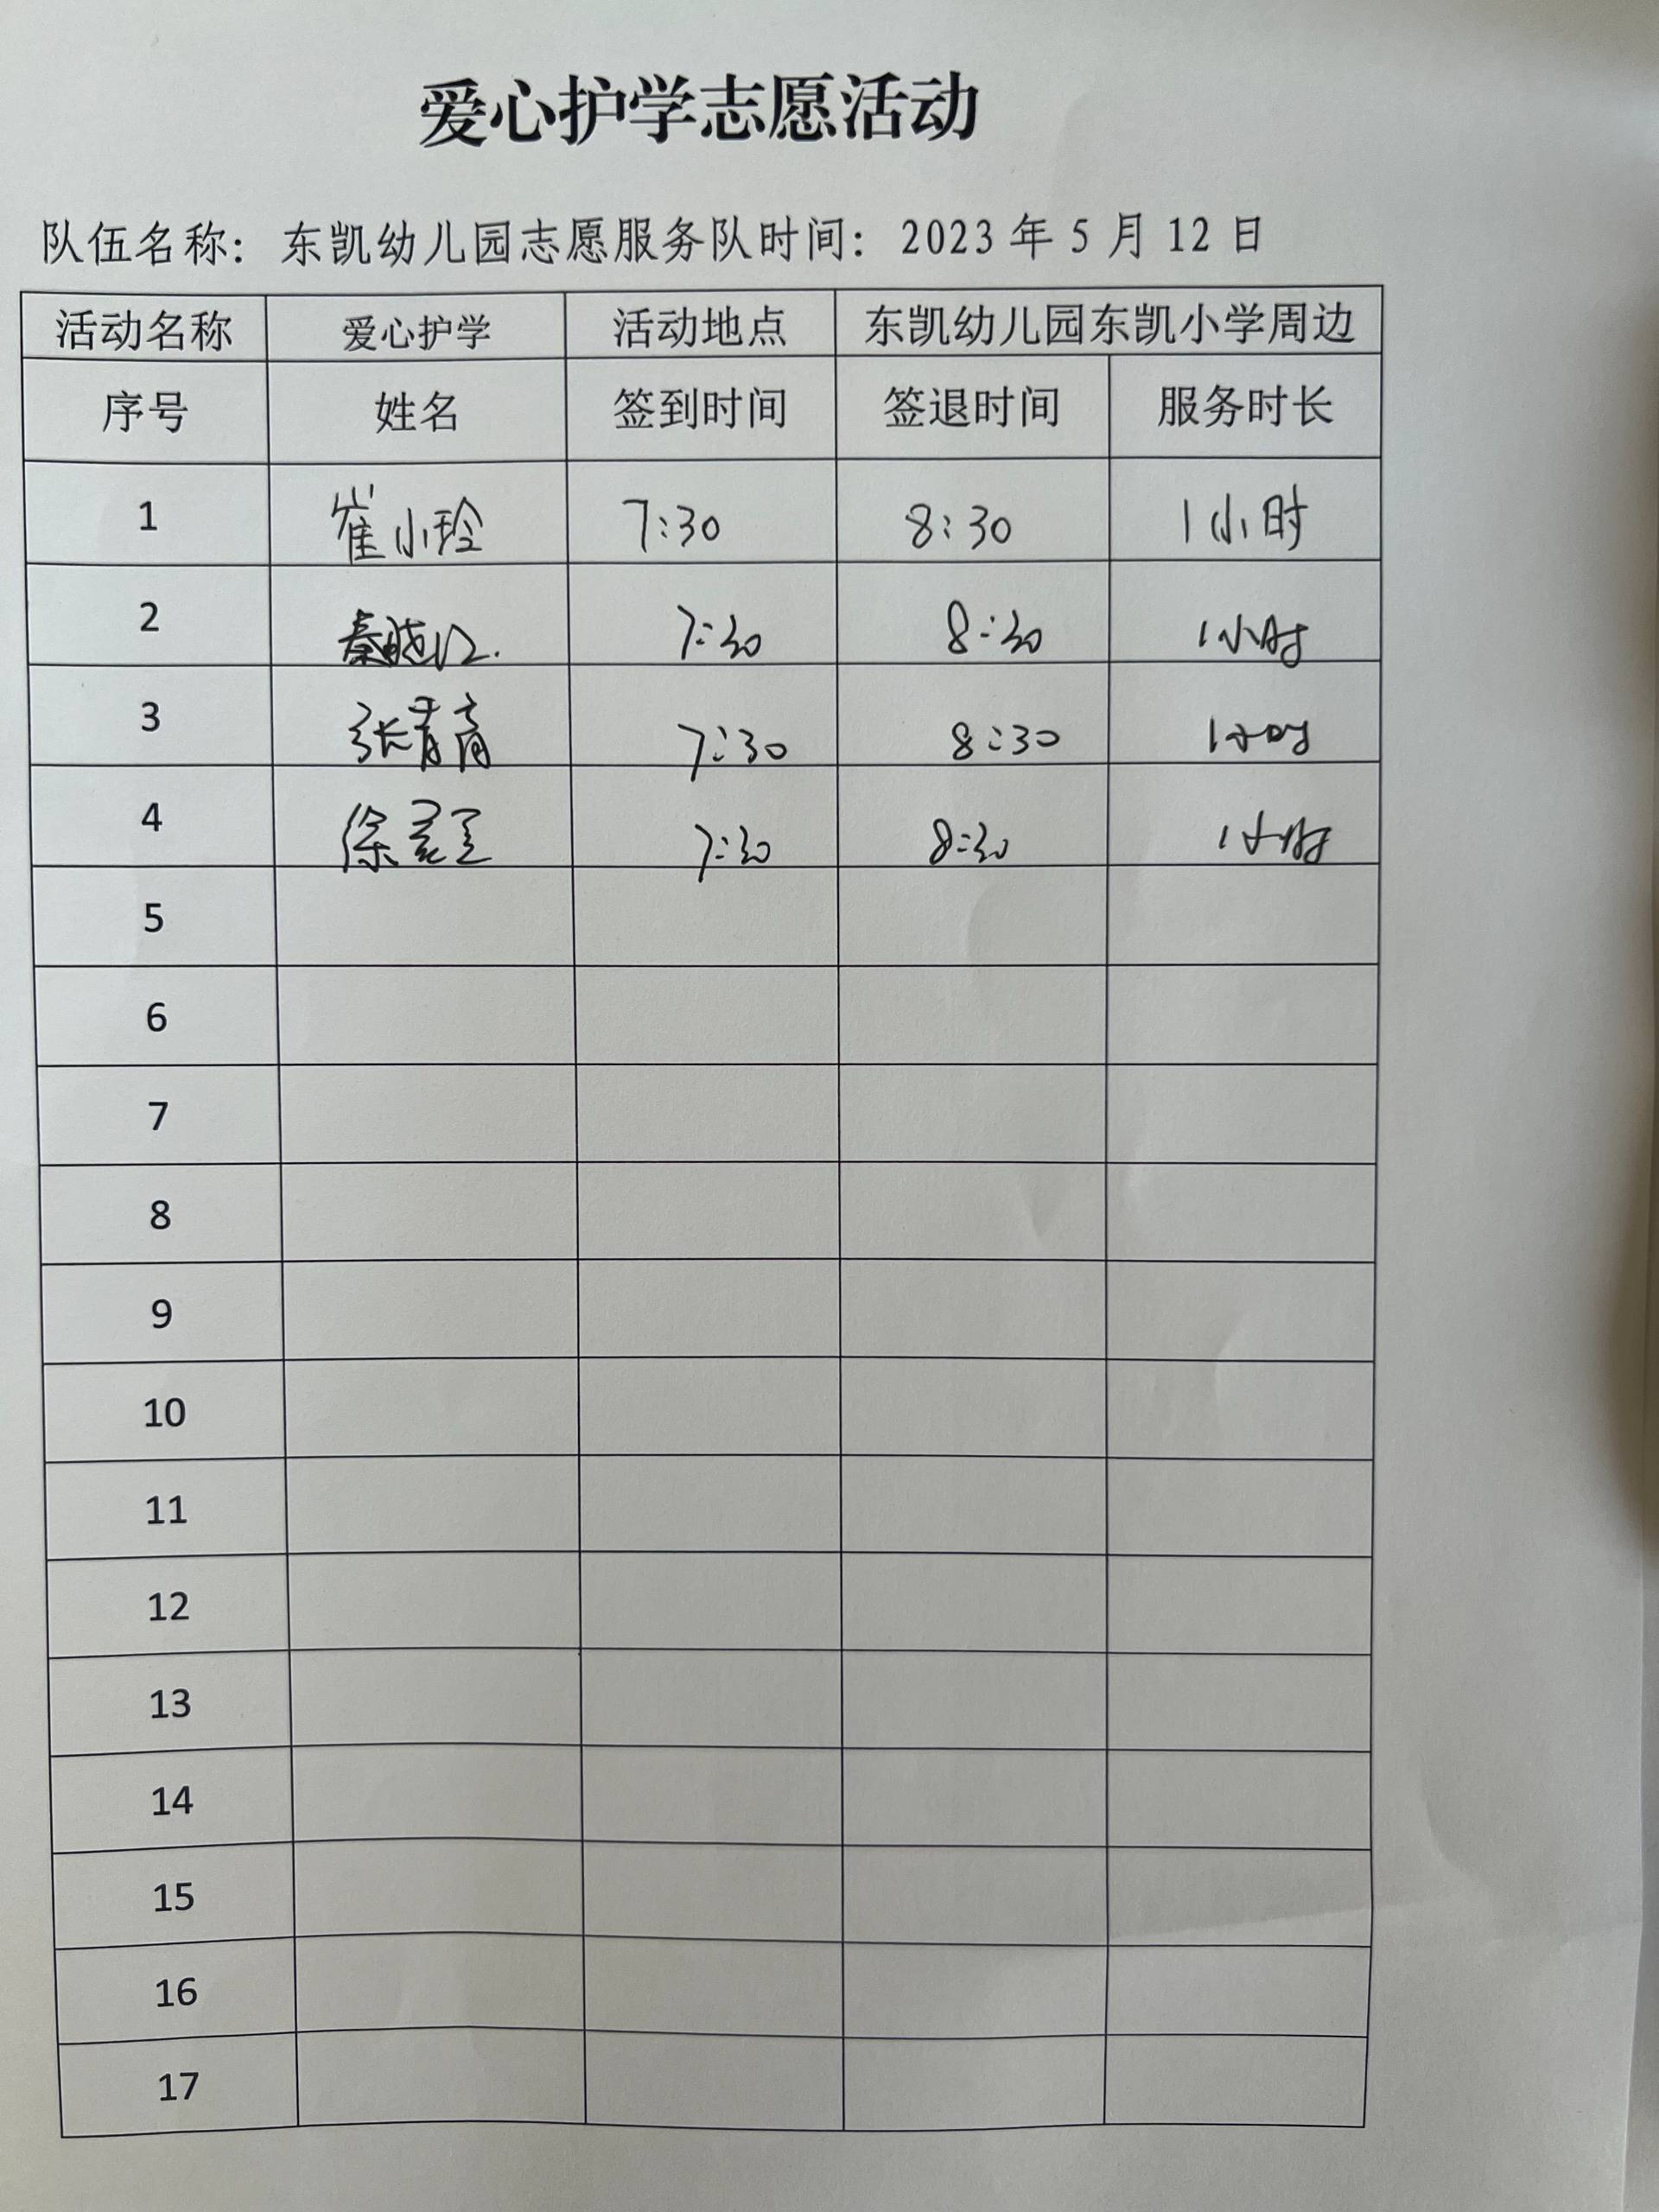 爱心护学志愿活动
队伍名称：东凯幼儿园志愿服务队时间：2023 年 5 月 12 日
活动名称 爱心护学 活动地点 东凯幼儿园东凯小学周边
序号 姓名 签到时间 签退时间 服务时长
1 崔小玲 7:30 8:30 1小时
2 秦晓 7:30 8:30 1小时
3 张青 7:30 8:30 1小时
4 徐 7:30 8:30 1小时
5
6
7
8
9
10
11
12
13
14
15
16
17